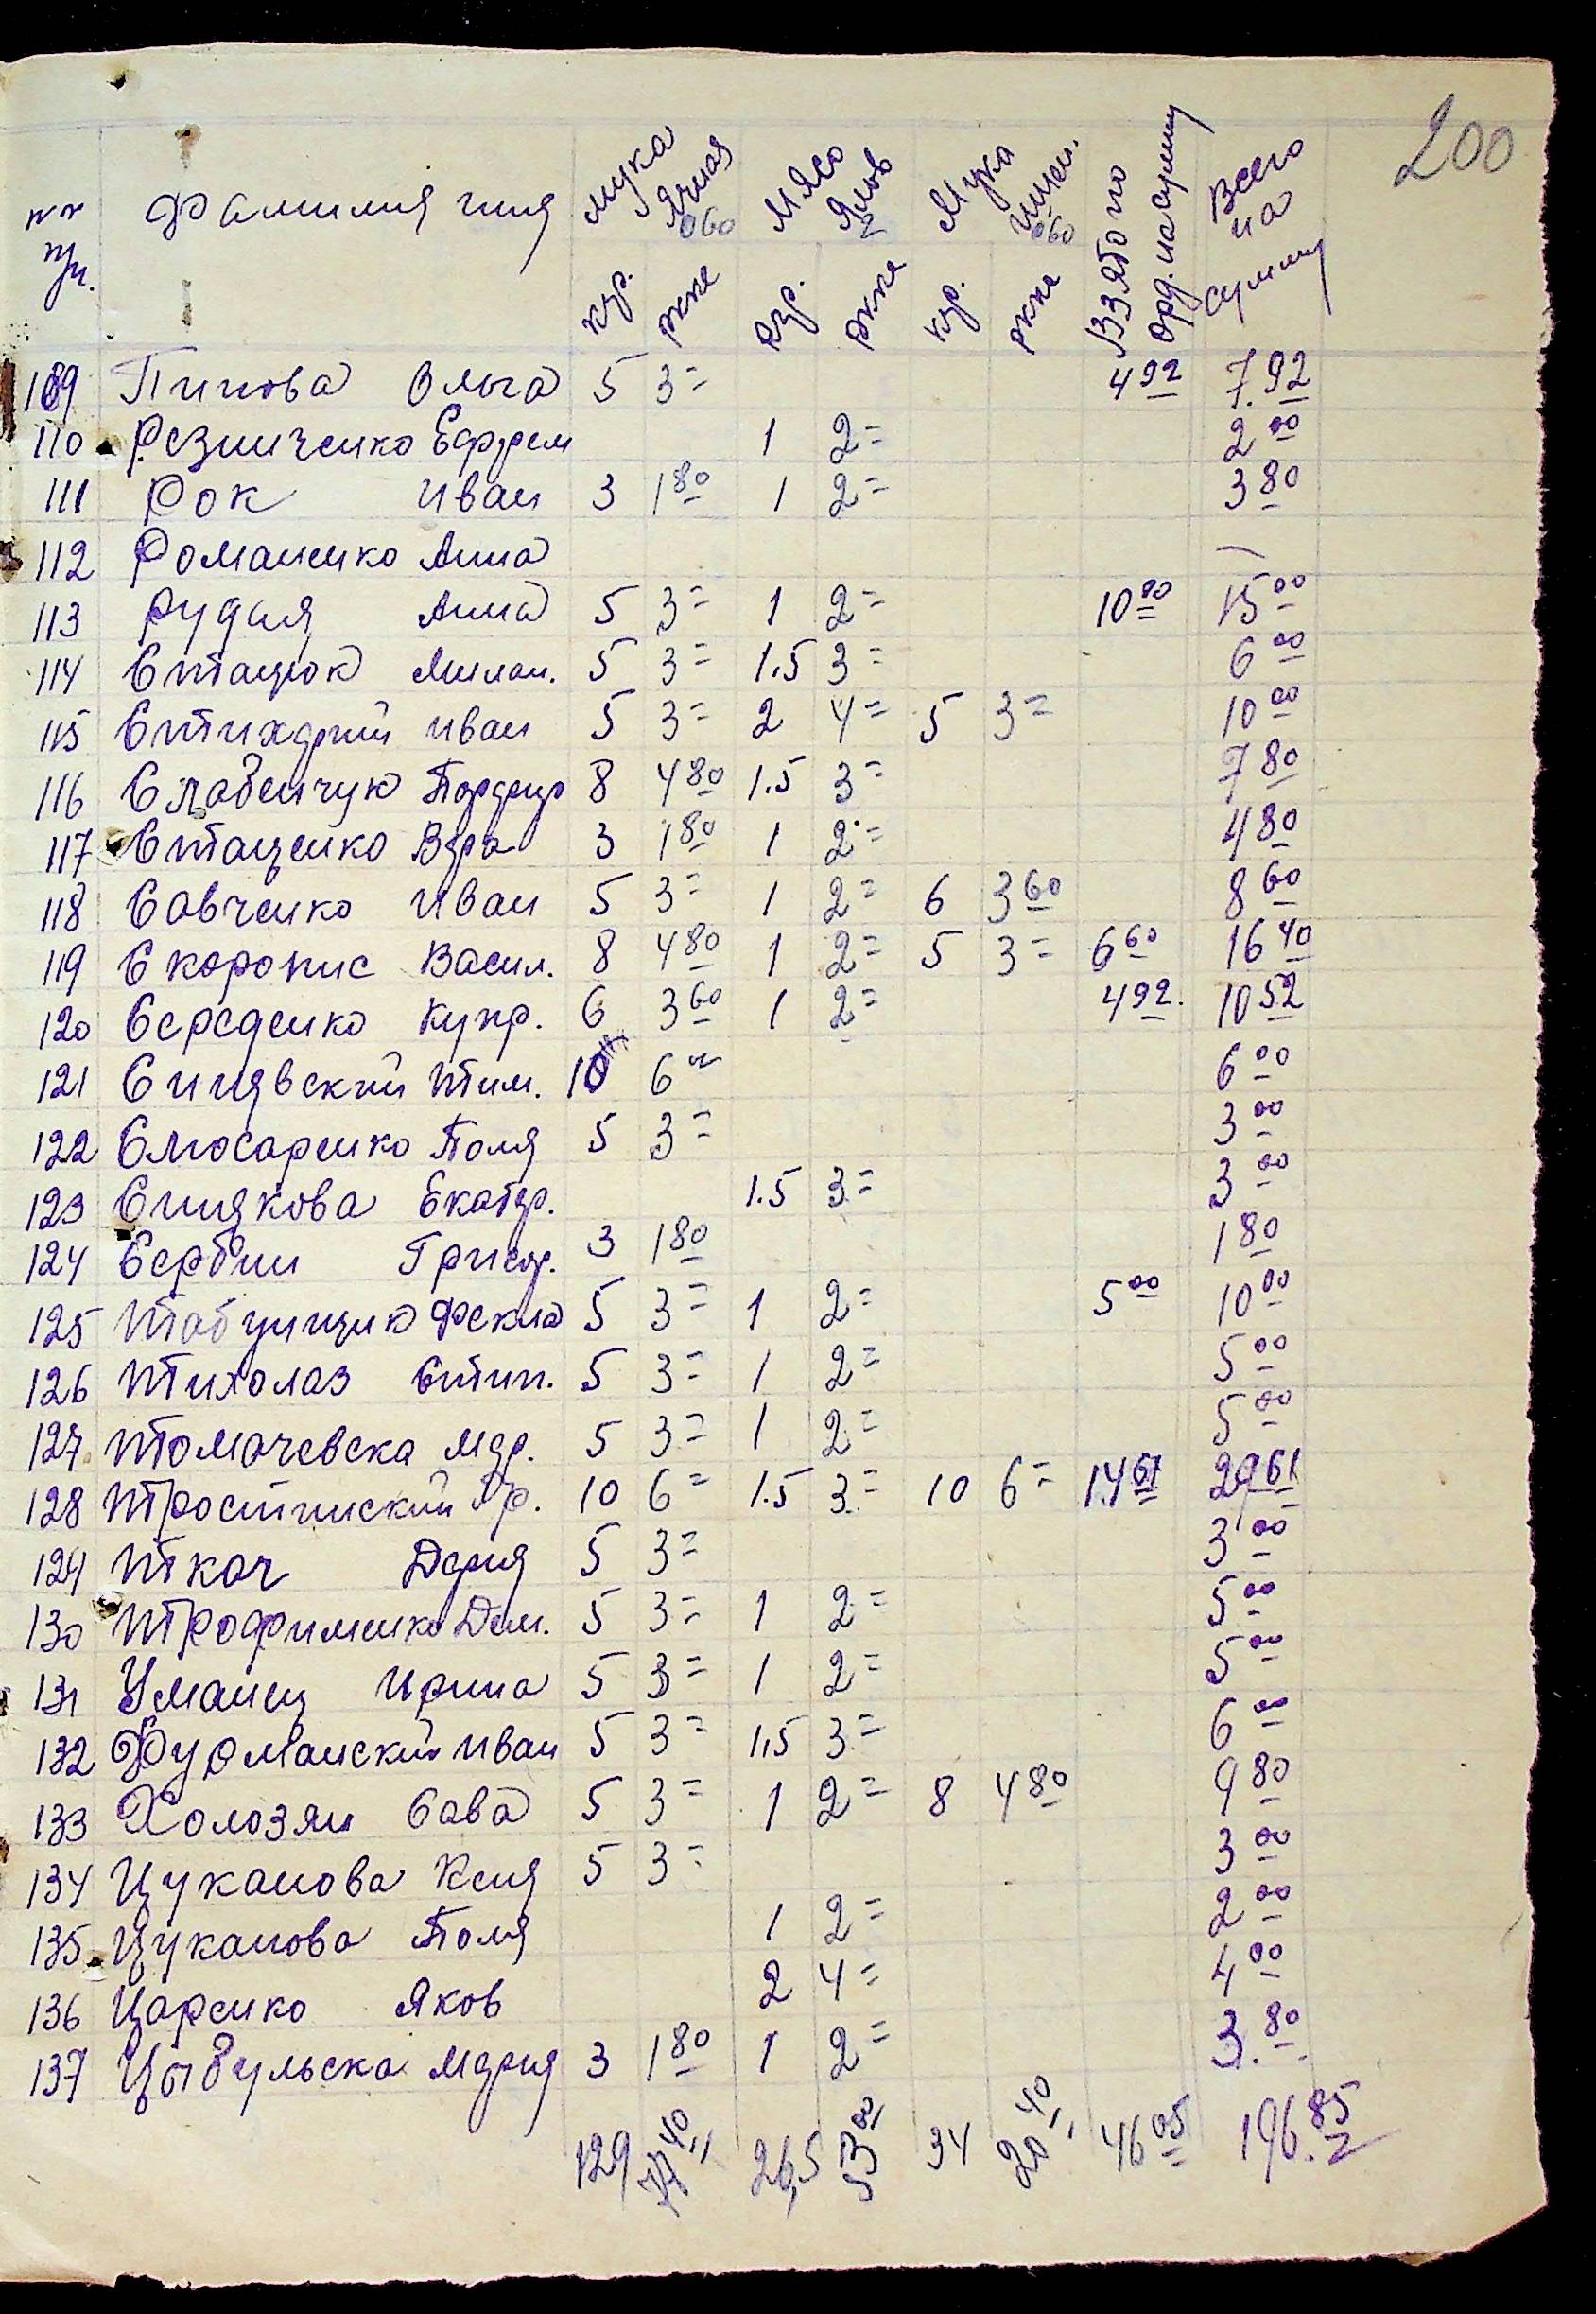 200
№№ п/п. Фамилия имя Мука Ячная 0 60 Мясо Ялов 2 Мука пшен. 0 60 Взято по орд. на сумму Всего на сумму
кгр. ркпе кгр. ркпе кгр. ркпе
109 Пинова Ольга 5 3= 4 92 7.92
110 Резниченко Ефрем 1 2= 2 00
111 Рок Иван 3 1 80 1 2= 3 80
112 Романенко Анна —
113 Рудая Анна 5 3= 1 2= 10 00 15 00
114 Стацюк Милан. 5 3= 1.5 3= 6 00
115 Стихдний Иван 5 3= 2 4= 5 3= 10 00
116 Слабенчук Порфир 8 4 80 1.5 3= 7 80
117 Стаценко Вера 3 1 80 1 2= 4 80
118 Савченко Иван 5 3= 1 2= 6 3 60 8 60
119 Скоропис Васил. 8 4 80 1 2= 5 3= 6 60 16 40
120 Середенко Купр. 6 3 60 1 2= 4 92. 10 52
121 Синявский Тим. 10 6 00 6 00
122 Слюсаренко Поля 5 3= 3 00
123 Синякова Екатер. 1.5 3= 3 00
124 Сербин Григор. 3 1 80 1 80
125 Табунщик Фекла 5 3= 1 2= 5 00 10 00
126 Тихолаз Степ. 5 3= 1 2= 5 00
127 Томачевска Мар. 5 3= 1 2= 5 00
128 Тростинский Гр. 10 6= 1.5 3= 10 6= 14 61 29 61
129 Ткач Дария 5 3= 3 00
130 Трофименко Дем. 5 3= 1 2= 5 00
131 Уманец Ирина 5 3= 1 2= 5 00
132 Фурманский Иван 5 3= 1,5 3= 6 00
133 Холозян Сава 5 3= 1 2= 8 4 80 9 80
134 Цуканова Ксия 5 3= 3 00
135 Цуканова Поля 1 2= 2 00
136 Царенко Яков 2 4= 4 00
137 Цыбульска Мария 3 1 80 1 2= 3.80
129 77 40 26,5 53 00 34 20 40 46 05 196.85